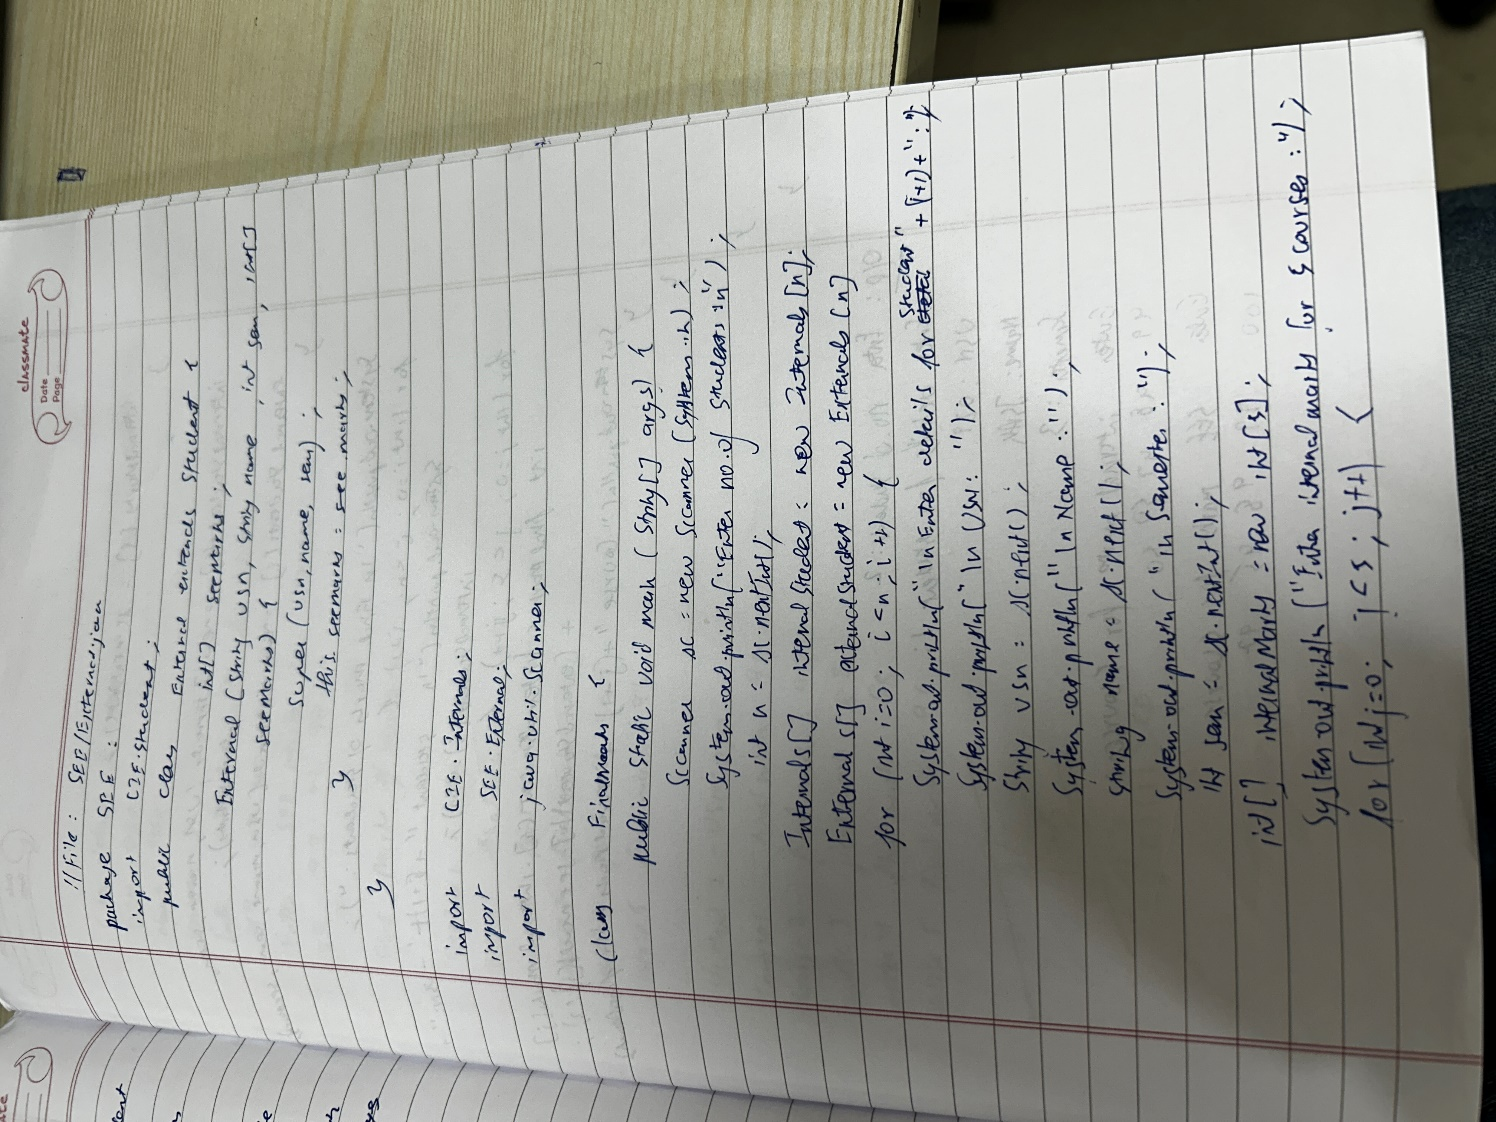 classmate
Date
Page
// File : SEE/External.java
package SEE ;
import CIE.student ;
public class External extends Student {
int[] seemarks ;
External (String usn, String name, int sem, int[]
seemarks) {
super (usn, name, sem) ;
this. seemarks = see marks ;
}
}
import CIE.Internals ;
import SEE.External ;
import java.util.Scanner ;
class Finalmarks {
public static void main (String[] args) {
Scanner sc = new Scanner (System.in) ;
System.out.println("Enter no.of students :\n") ;
int n = sc.nextInt() ;
Internals[] internalStudent = new Internals[n];
Externals[] externalStudent = new Externals[n]
for (int i=0 ; i<n ; i++) {
System.out.println("\nEnter details for student" + (i+1) + ":");
System.out.println("\n USN: ");
String usn = sc.next() ;
System.out.println("\n Name : ") ;
String name = sc.next() ;
System.out.println("\n Semester : ") ;
int sem = sc.nextInt() ;
int[] internalMarks = new int[5] ;
System.out.println ("Enter internal marks for 5 courses :") ;
for (int j=0; j<5 ; j++) {